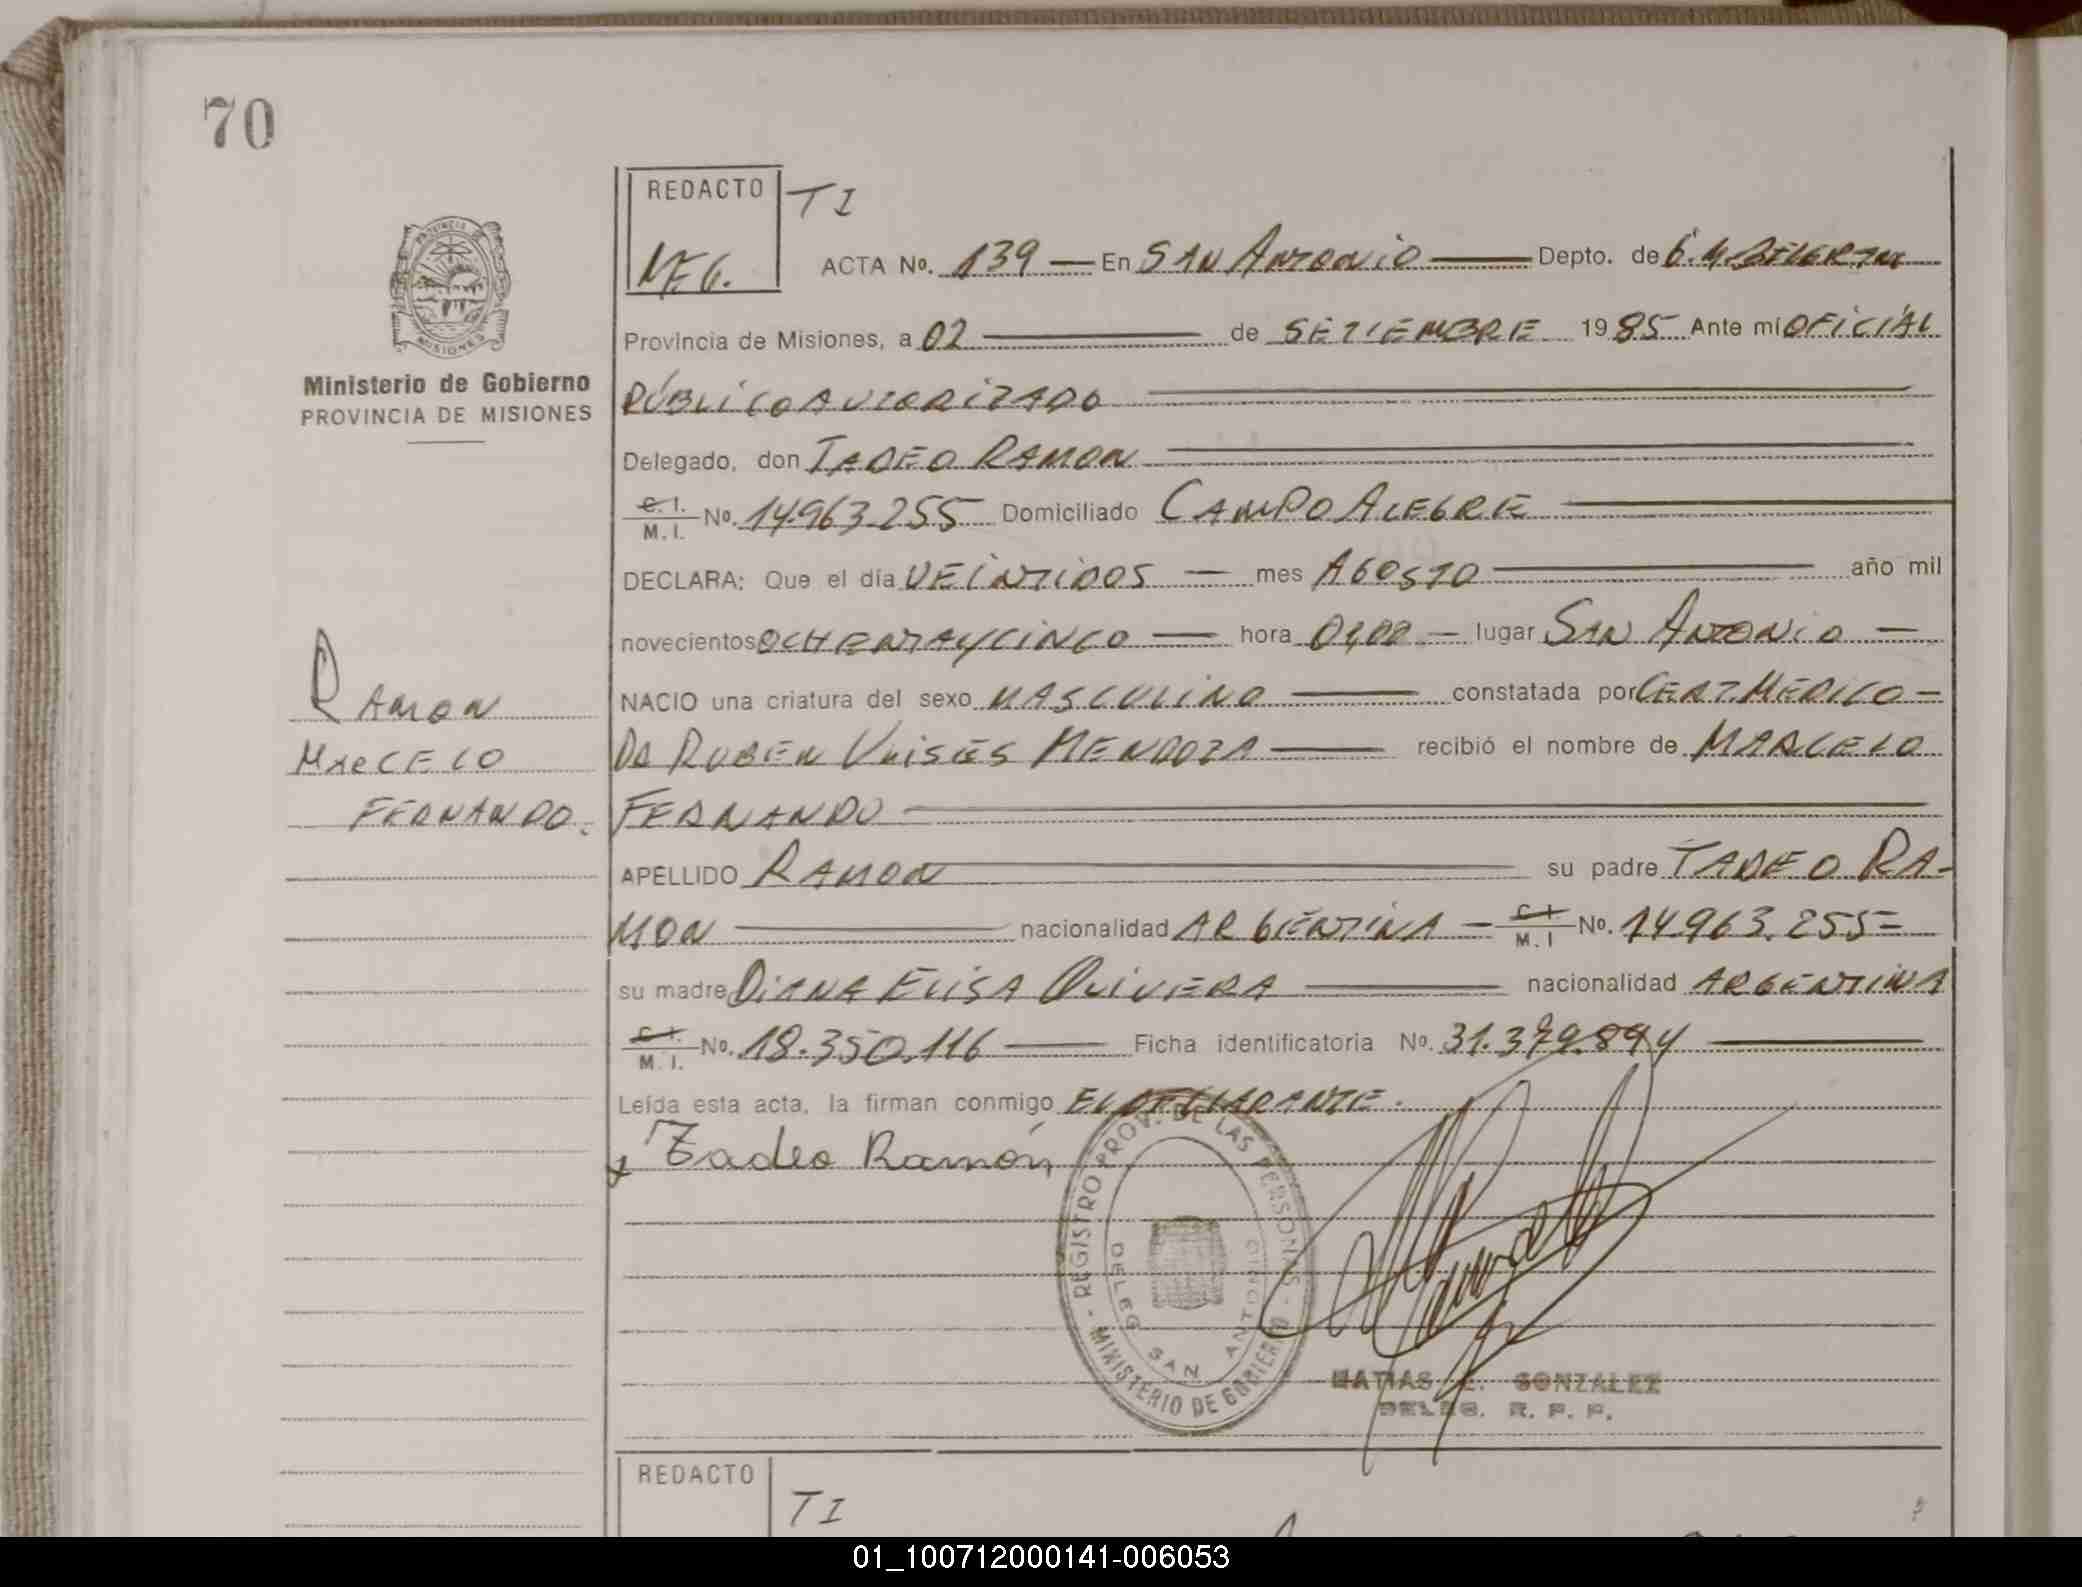 70
REDACTO TI
M.E.G.
ACTA No. 139 — En SAN ANTONIO — Depto. de G. M. BELGRANO
PROVINCIA DE MISIONES
Ministerio de Gobierno
PROVINCIA DE MISIONES
Provincia de Misiones, a 02 — de SETIEMBRE 1985 Ante mi OFICIAL
PÚBLICO AUTORIZADO
Delegado, don TADEO RAMON
C. I. / M. I. No. 14.963.255 Domiciliado CAMPO ALEGRE
DECLARA: Que el día VEINTIDOS — mes AGOSTO — año mil
novecientos OCHENTA Y CINCO — hora 01,00 — lugar SAN ANTONIO —
NACIO una criatura del sexo MASCULINO — constatada por CERT. MEDICO =
DR RUBEN ULISES MENDOZA — recibió el nombre de MARCELO
FERNANDO
APELLIDO RAMON — su padre TADEO RA-
MON — nacionalidad ARGENTINA — C. I. / M. I No. 14.963.255=
su madre DIANA ELISA OLIVERA — nacionalidad ARGENTINA
C. I. / M. I. No. 18.350.116 — Ficha identificatoria No. 31.379.894 —
Leída esta acta, la firman conmigo EL DECLARANTE.
RAMON
MARCELO
FERNANDO.
x Tadeo Ramón
REGISTRO PROV. DE LAS PERSONAS - MINISTERIO DE GOBIERNO -
DELEG SAN ANTONIO
MATIAS GONZALEZ
DELEG. R. P. P.
REDACTO TI
01_100712000141-006053